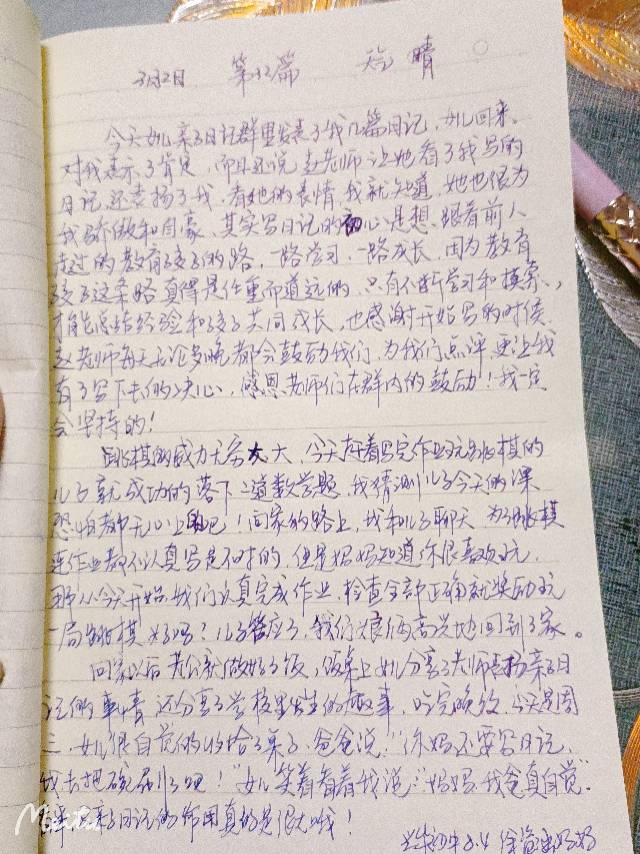 3月2日 第32篇 天气 晴
今天女儿亲子日记群里发表了我几篇日记，女儿回来，
对我表示了肯定，而且还说赵老师让她看了我写的
日记还表扬了我，看她的表情，我就知道，她也很为
我骄傲和自豪，其实写日记的初心是想，跟着前人
走过的教育孩子的路，一路学习，一路成长，因为教育
孩子这条路真得是任重而道远的，只有不断学习和摸索，
才能总结经验和孩子共同成长，也感谢开始写的时候
赵老师每天无论多晚都会鼓励我们，为我们点评更让我
有了写下去的决心，感恩老师们在群内的鼓励！我一定
会坚持的！
跳棋的威力无穷大，今天赶着写完作业玩跳棋的
儿子就成功的落下二道数学题，我猜测儿子今天的课
恐怕都无心上的吧！回家的路上，我和儿子聊天 为了跳棋
连作业都不认真写是不对的，但是妈妈知道你很喜欢玩，
那从今天开始，我们认真完成作业，检查全部正确就奖励玩
一局跳棋 好吗？儿子答应了，我们娘俩高兴地回到了家。
回家以后 老公做好了饭，饭桌上 女儿分享了老师表扬亲子日
记的事情 还分享了学校里发生的故事，吃完晚饭，今天是周
三，女儿很自觉的收拾了桌子，爸爸说："你妈还要写日记，
我去把碗刷了吧！"女儿笑着看着我说："妈妈，我爸真自觉"。
亲子日记的作用真的是很大哦！